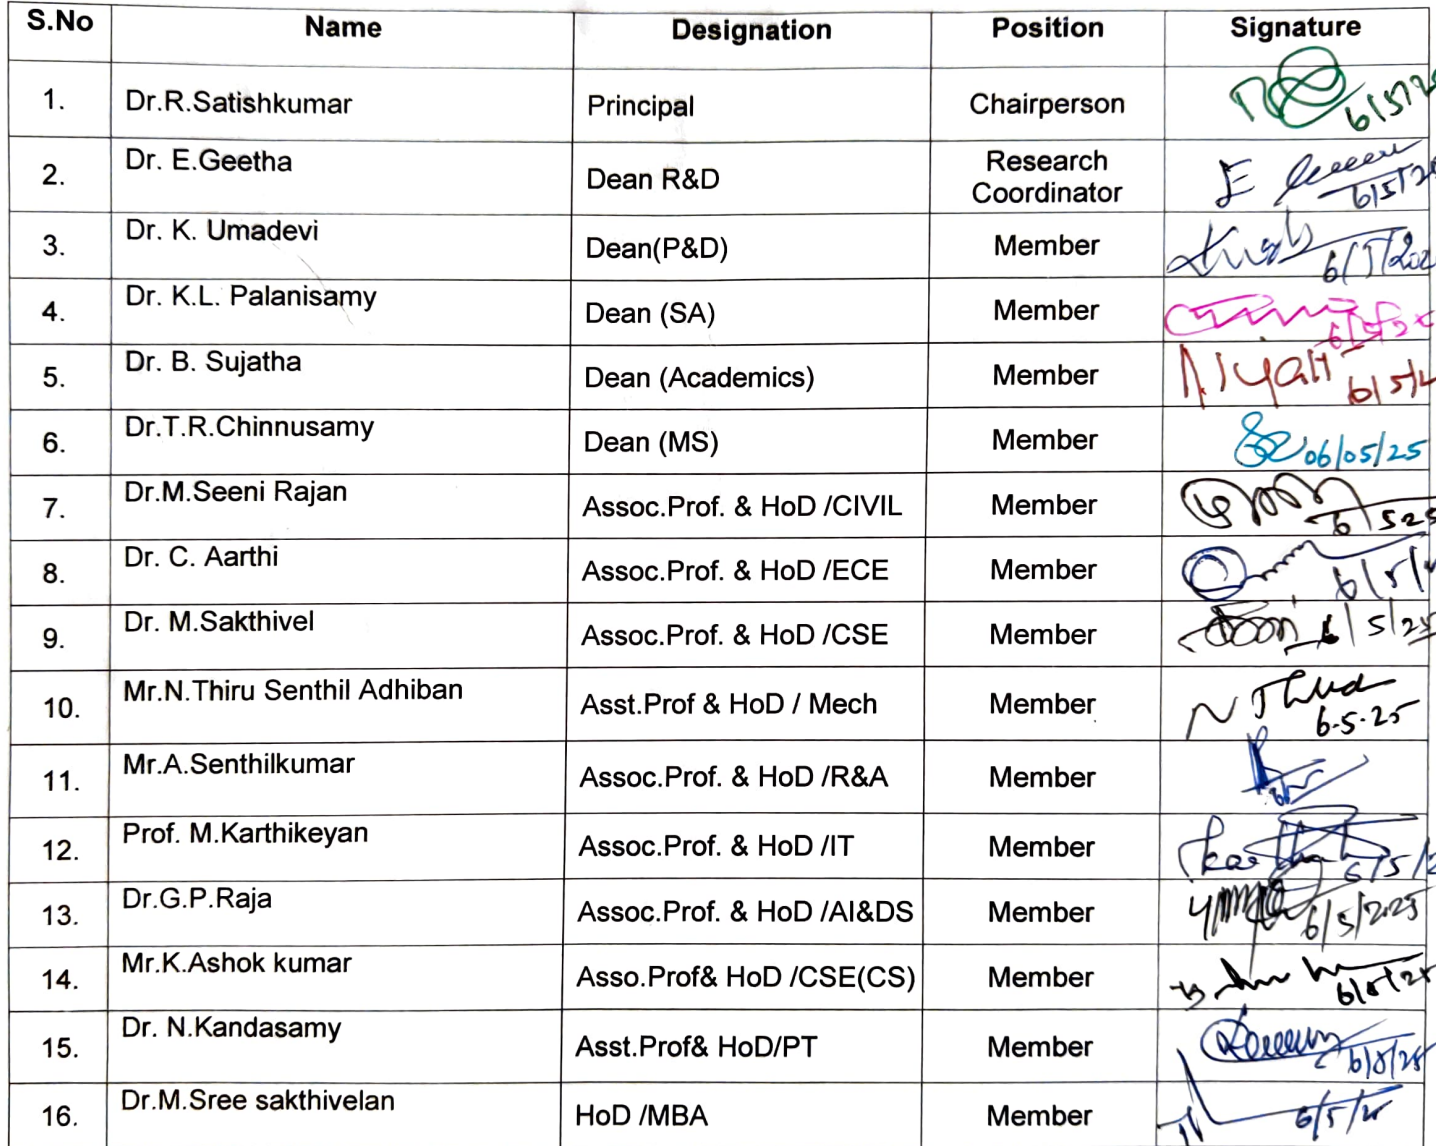 S.No Name Designation Position Signature
1. Dr.R.Satishkumar Principal Chairperson 6/5/25
2. Dr. E.Geetha Dean R&D Research Coordinator E 6/5/2
3. Dr. K. Umadevi Dean(P&D) Member 6/5/202
4. Dr. K.L. Palanisamy Dean (SA) Member
5. Dr. B. Sujatha Dean (Academics) Member 6/5/2
6. Dr.T.R.Chinnusamy Dean (MS) Member 06/05/25
7. Dr.M.Seeni Rajan Assoc.Prof. & HoD /CIVIL Member 6/525
8. Dr. C. Aarthi Assoc.Prof. & HoD /ECE Member 6/5/
9. Dr. M.Sakthivel Assoc.Prof. & HoD /CSE Member 6/5/25
10. Mr.N.Thiru Senthil Adhiban Asst.Prof & HoD / Mech Member 6-5-25
11. Mr.A.Senthilkumar Assoc.Prof. & HoD /R&A Member
12. Prof. M.Karthikeyan Assoc.Prof. & HoD /IT Member 6/5/2
13. Dr.G.P.Raja Assoc.Prof. & HoD /AI&DS Member 6/5/2025
14. Mr.K.Ashok kumar Asso.Prof& HoD /CSE(CS) Member 6/5/25
15. Dr. N.Kandasamy Asst.Prof& HoD/PT Member 6/5/25
16. Dr.M.Sree sakthivelan HoD /MBA Member 6/5/25